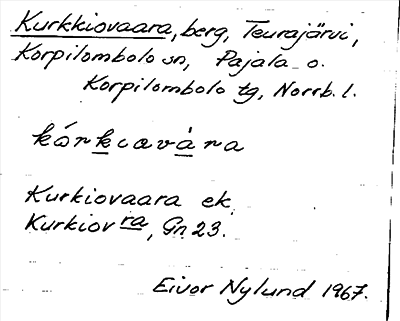 Kurkkiovaara, berg, Teurajärvi,
Korpilombolo sn, Pajala o.
Korpilombolo tg, Norrb. l.
kórkiavàra
Kurkiovaara ek.
Kurkiov ra, Gn 23.
Eivor Nylund 1967.